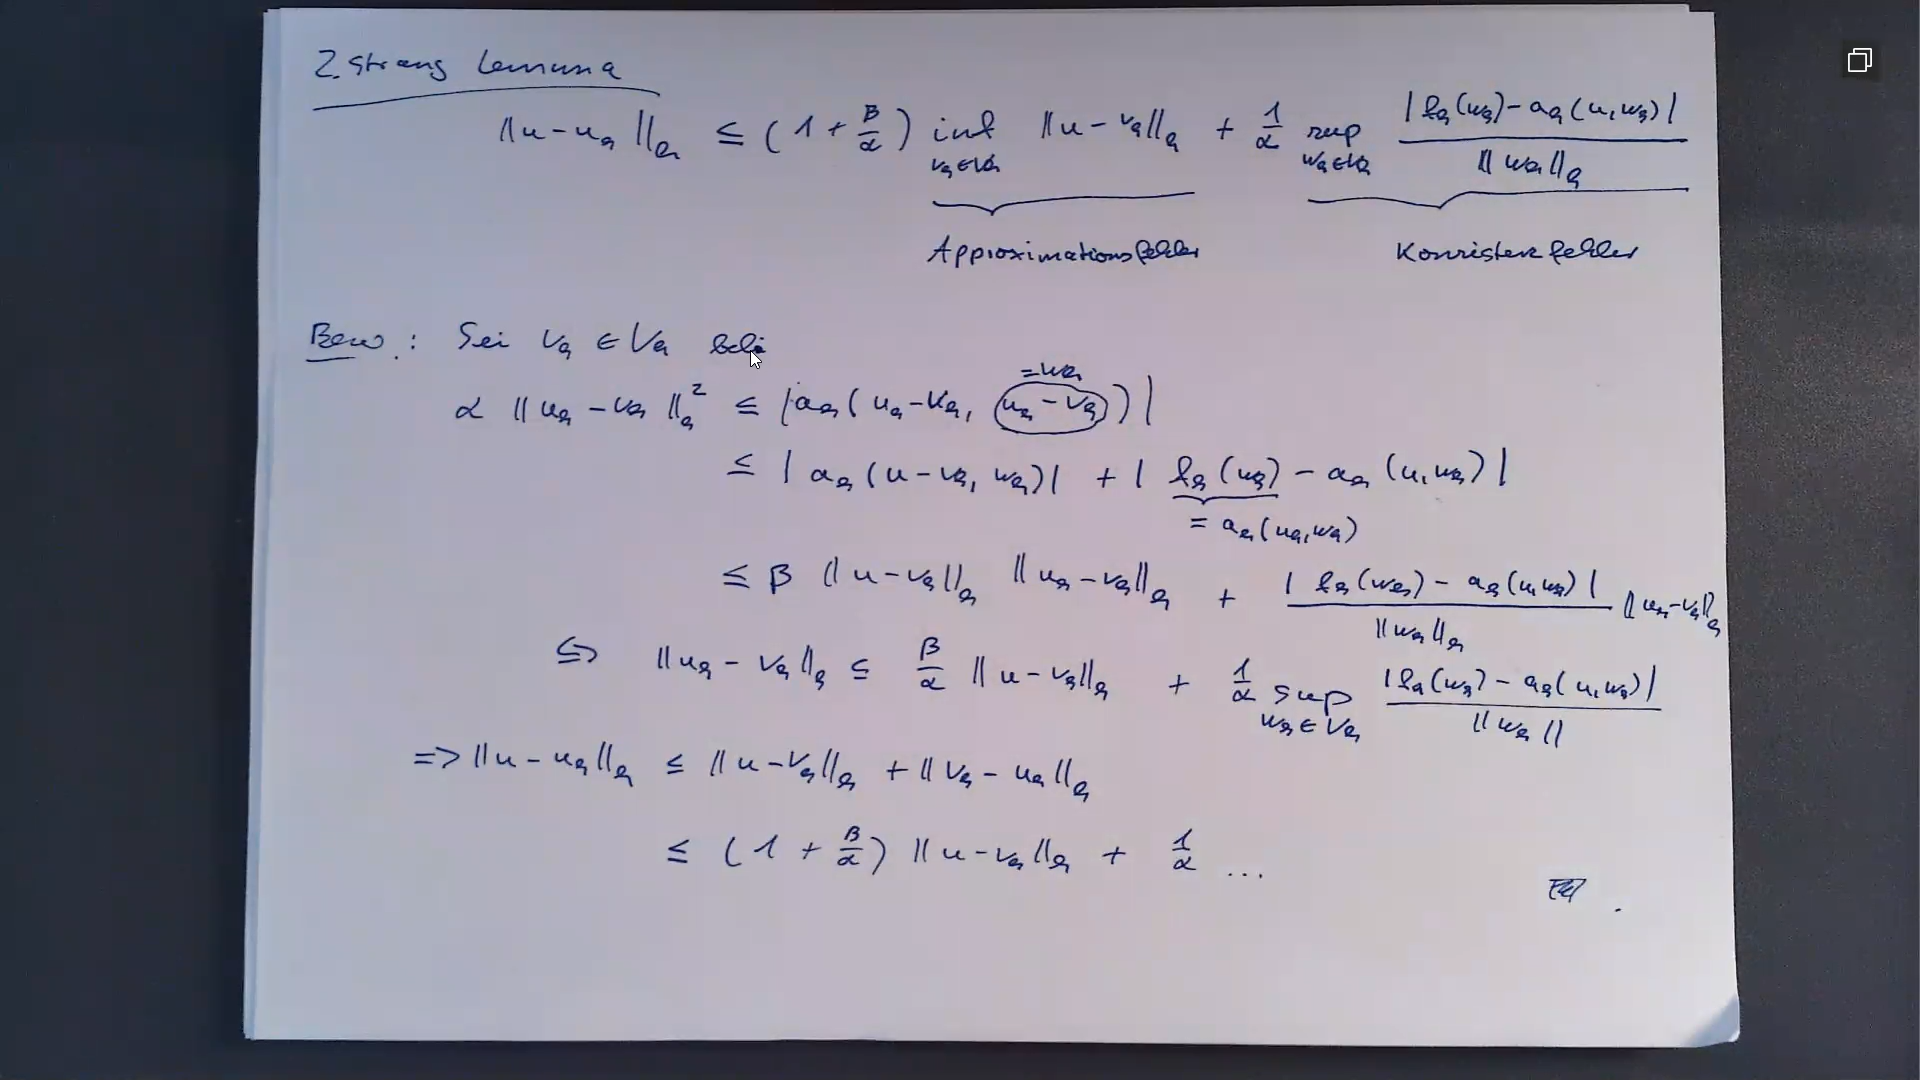 2. Strang Lemma
‖u - u_h‖_h ≤ (1 + β/α) inf_{v_h ∈ V_h} ‖u - v_h‖_h + 1/α sup_{w_h ∈ V_h} |l_h(w_h) - a_h(u, w_h)| / ‖w_h‖_h
Approximationsfehler Konsistenzfehler
Bew.: Sei v_h ∈ V_h bel.
= w_h
α ‖u_h - v_h‖_h^2 ≤ |a_h(u_h - v_h, u_h - v_h)|
≤ |a_h(u - v_h, w_h)| + |l_h(w_h) - a_h(u, w_h)|
= a_h(u_h, w_h)
≤ β ‖u - v_h‖_h ‖u_h - v_h‖_h + |l_h(w_h) - a_h(u, w_h)| / ‖w_h‖_h ‖u_h - v_h‖_h
⇔ ‖u_h - v_h‖_h ≤ β/α ‖u - v_h‖_h + 1/α sup_{w_h ∈ V_h} |l_h(w_h) - a_h(u, w_h)| / ‖w_h‖
=> ‖u - u_h‖_h ≤ ‖u - v_h‖_h + ‖v_h - u_h‖_h
≤ (1 + β/α) ‖u - v_h‖_h + 1/α ...